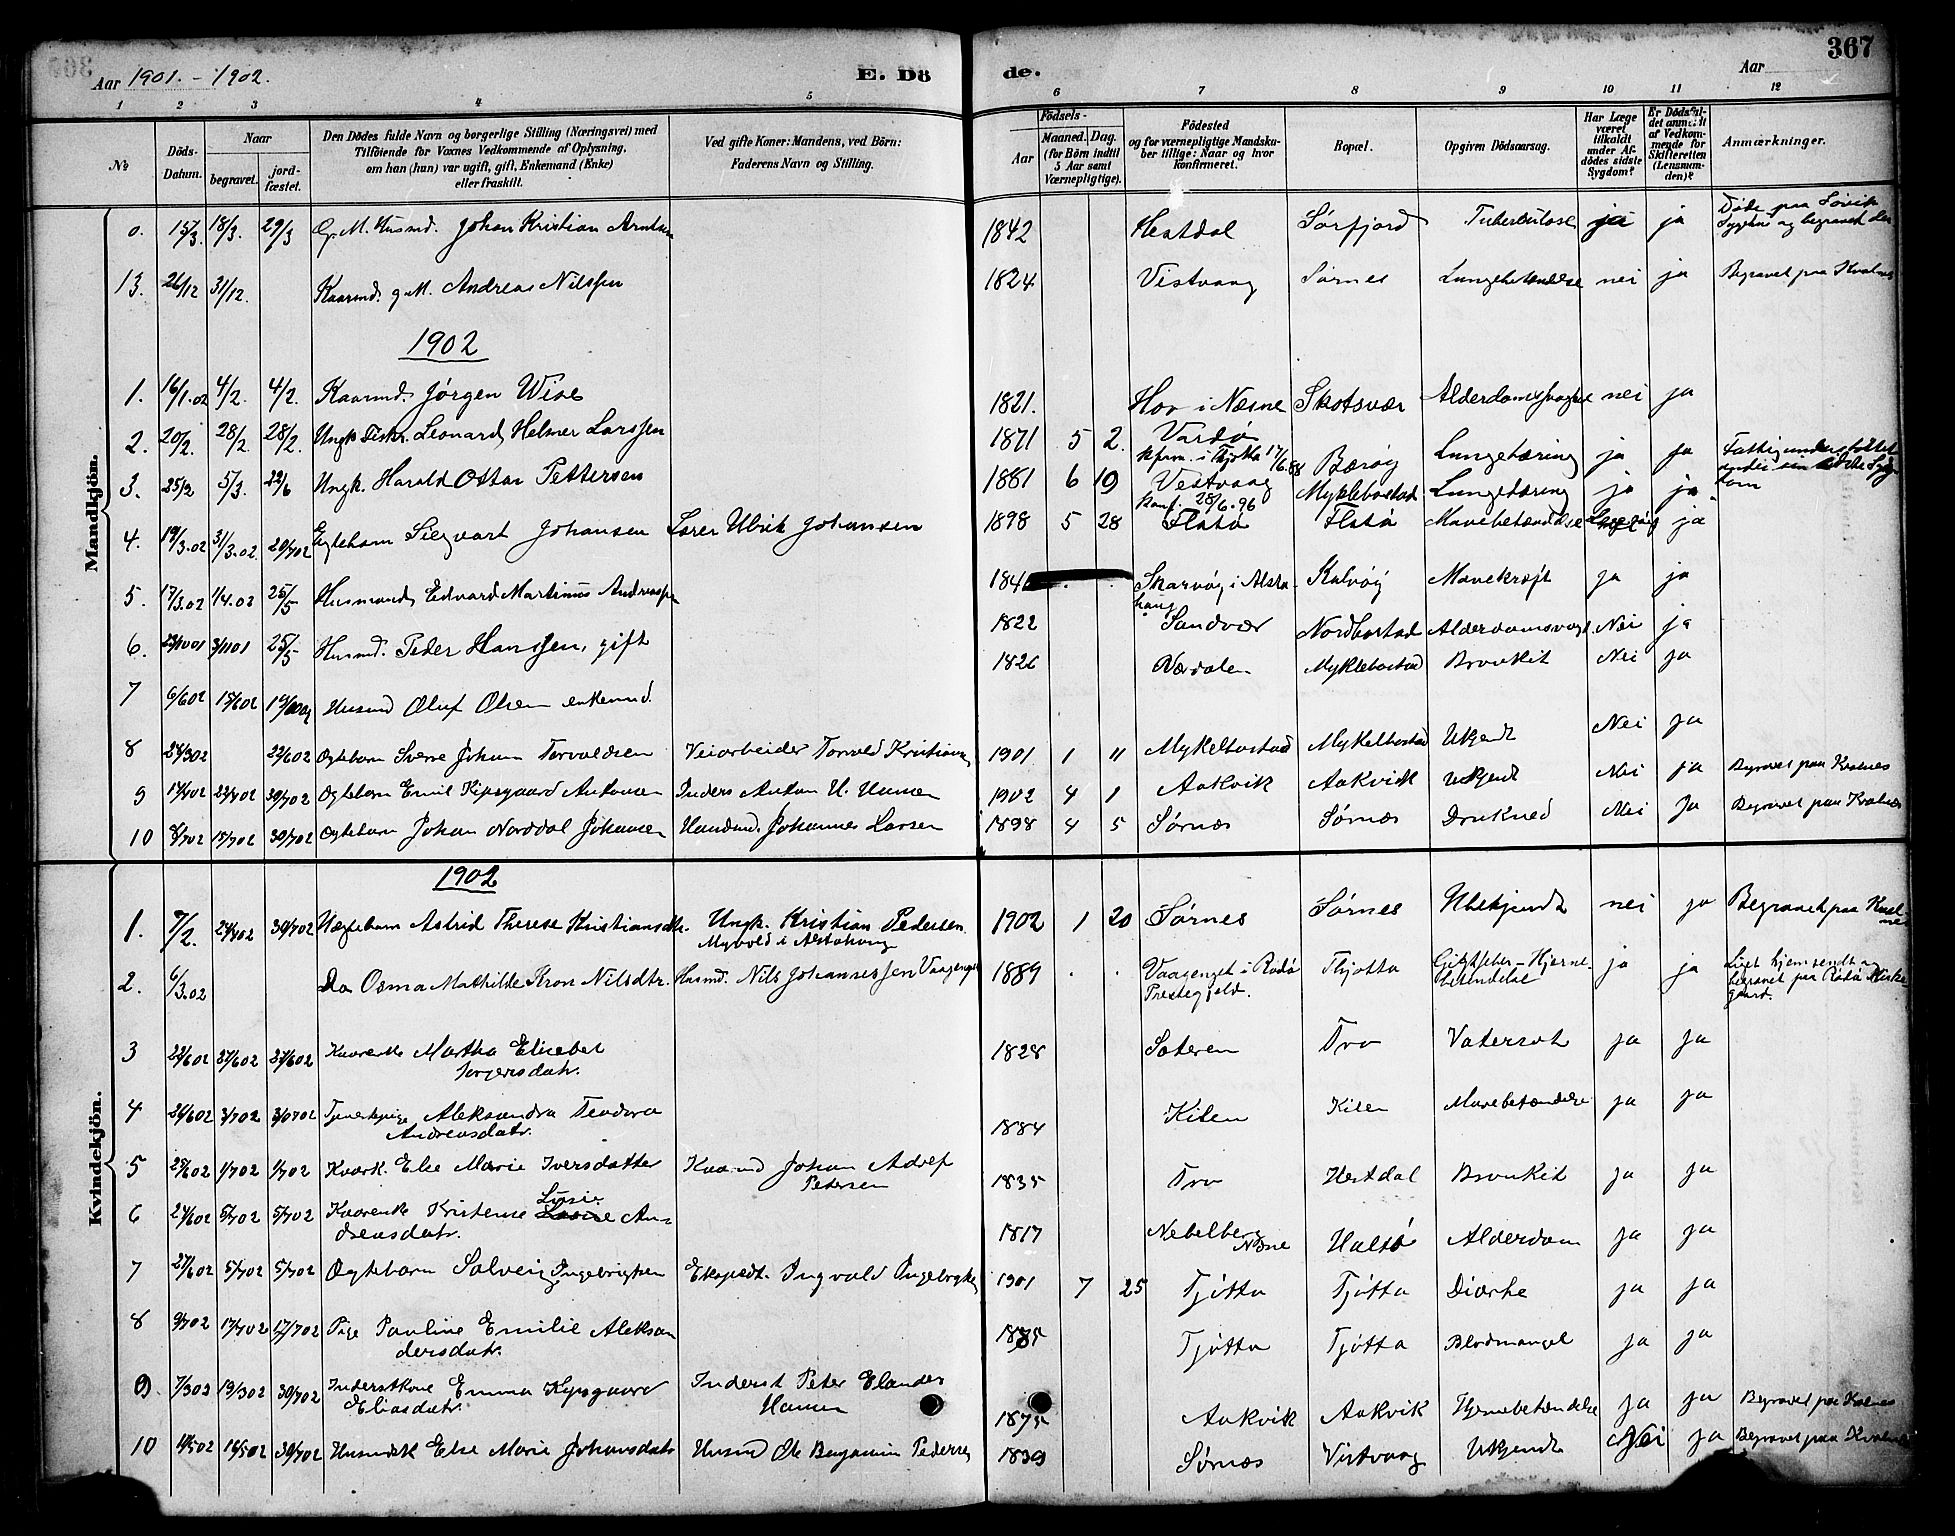 Aar 1901. - 1902.
E. Dö
de.
Aar
367
1 2 3 4 5 6 7 8 9 10 11 12
No
Döds-Datum.
Naar
begravet.
jord-fæstet.
Den Dödes fulde Navn og borgerlige Stilling (Næringsvei) med
Tilföiende for Voxnes Vedkommende af Oplysning,
om han (hun) var ugift, gift, Enkemand (Enke)
eller fraskilt.
Ved gifte Koner: Mandens, ved Börn:
Faderens Navn og Stilling.
Födsels-
Aar
Maaned. Dag.
(for Börn indtil
5 Aar samt
Værnepligtige).
Födested
og for værnepligtige Mandska-
ber tillige: Naar og hvor
konfirmeret.
Bopæl.
Opgiven Dödsaarsag.
Har Læge
været
tilkaldt
under Af-
dödes sidste
Sygdom?
Er Dödsfal-
det anmeldt
af Vedkom-
mende for
Skifteretten
(Lensman-
den)?
Anmærkninger.
Mandkjön.
18/3. 29/3 G. M. Husmd. Johan Kristian Arntsen 1842 Hestdal Sørfjord Tuberkulose ja ja Døde paa Søvik Sygehus og begravet der
13. 26/12 31/12. Kaarmd. g. M. Andreas Nilssen 1824 Vistvaag Sørnes Lungebetændelse nei ja Begravet paa Kvalnes
1902
1. 16/1.02 4/2. 4/2. Kaarmd. Jørgen Wise 1821. Hov i Næsne Skotsvær nei ja
2. 20/2. 28/2 28/2. Ungk. Fisk. Leonard Helmer Larssen 1871 5 2. Vardø Bærøy Lungetæring ja ja
kfirm. i Thjøtta
3. 25/2 5/3. 22/6 Ungk. Harald Ottar Pettersen 1881 6 19 Vestvaag Myklebostad Lungetæring ja ja
konf. 28/6.96
4. 19/3.02 31/3.02. 20/702 Egtebarn Siegvart Johansen Lars Ulrik Johansen 1898 5 28 Flatø Flatø Mavebetændelse ja
5. 17/3.02 1/4.02 25/5 Husmand Edvard Martinus Andreassen Skarvøy i Alsta-haug Kalvøy Mavekræft ja ja
6. 3/1101 25/5 Husmd. Peder Hanssen, gift 1822 Sandvær Nordbostad Nei ja
7 6/602 15/602 Husmd Oluf Olsen enkemd. 1826 Nærdalen Myklebostad Bronkit Nei ja
8 22/602 Ægtebarn Sverre Johan Torvaldsen Veiarbeider Torvald Kristians 1901 1 11 Mykelbostad Mykelbostad Ukjendt Nei ja
9 30/702 Ogtebarn Emil Kipsgaard Antonsen Inders Anton H. Hansen 1902 4 1 Aakvik Aakvik Ukjendt Nei ja Begravet paa Kvalnes
10 8/702 15/702 30/702 Ogtebarn Johan Norddal Johansen Johannes Larsen 1898 4 5 Sørnæs Sørnæs Drukned Nei Ja Begravet paa Kvalnæs
Kvindekjön.
1902
1. 7/2. 30/702 Uægtebarn Astrid Therese Kristiansdtr. Ungk. Kristian Pedersen 1902 1 20 Sørnes Sørnes Ubekjendt nei ja Begravet paa Kval-nes
i Alstahaug
2. 6/3.02 Do Osma Mathilde Kron Nilsdtr. Husmd. Nils Johannessen Vaagenget 1889 Vaagenget i Rødø Prestegjeld. Thjøtta Gigtfeber-Hjerne-betændelse ja ja Liget hjemsendt og begravet paa Rødø Kirkegaard.
3 22/602 27/602 27/602 Kaarenke Martha Elisebet Jørgensdatr. 1828 Sæteren Tro Vatersot ja ja
4 3/702 3/0702 Tjenestepige Aleksandra Teodora Andreasdatr. 1884 Kilen Kilen Mavebetændelse ja ja
5 25/602 1/702 1/702 Kaark. Else Marie Iversdatter Kaarmd Johan Adolf Petersen 1835 Tro Hestdal Bronkit ja ja
6 5/702 5/702 Kaarenke Kristense Lusie An-dreasdatr. 1817 Nebelberg Næsne Halsø Alderdom ja ja
7 27/602 5/702 5/702 Ogtebarn Solveig Ingebrigtsen Ekspedt. Ingvald Ingebrigts 1901 7 25 Tjøtta Tjøtta Diærhe ja ja
8 9/702 17/702 17/702 Pige Pauline Emilie Aleksan dersdatr. Tjøtta Tjøtta Blodmangel ja ja
9 7/302 19/302 30/702 Inderstkone Emma Kipsgaard Eliasdatr. Inderst Peter Elander Hansen 1875 Aakvik Aakvik Hjernebetændelse ja ja Begravet paa Kvalnes
10 16/502 30/702 Else Marie Johansdatr Husmd Ole Benjamin Pederse 1839 Sørnæs Vistvaag Ukjendt Nei ja Begravet paa Kvalnes